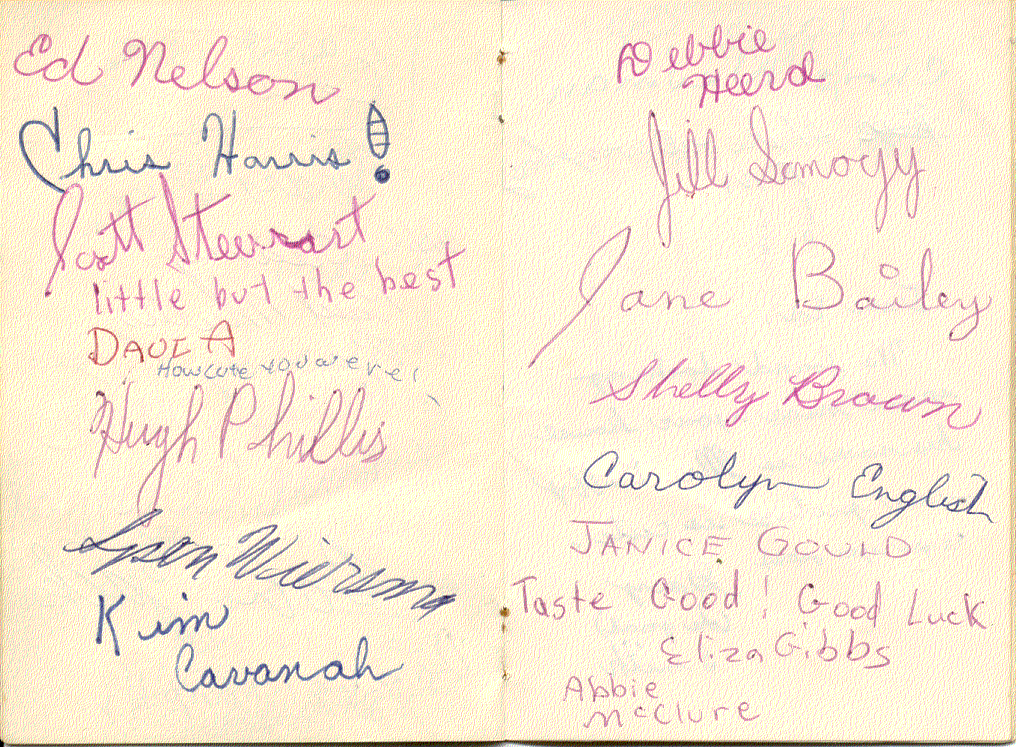 Ed Nelson
Chris Harris!
Scott Stewart
little but the best
DAVE A
How cute you were!
Hugh Phillis
Wiersma
Kim
Cavanah
Debbie
Heerd
Jill Somogy
Jane Bailey
Shelly Brown
Carolyn English
JANICE GOULD
Taste Good! Good Luck
Eliza Gibbs
Abbie
McClure